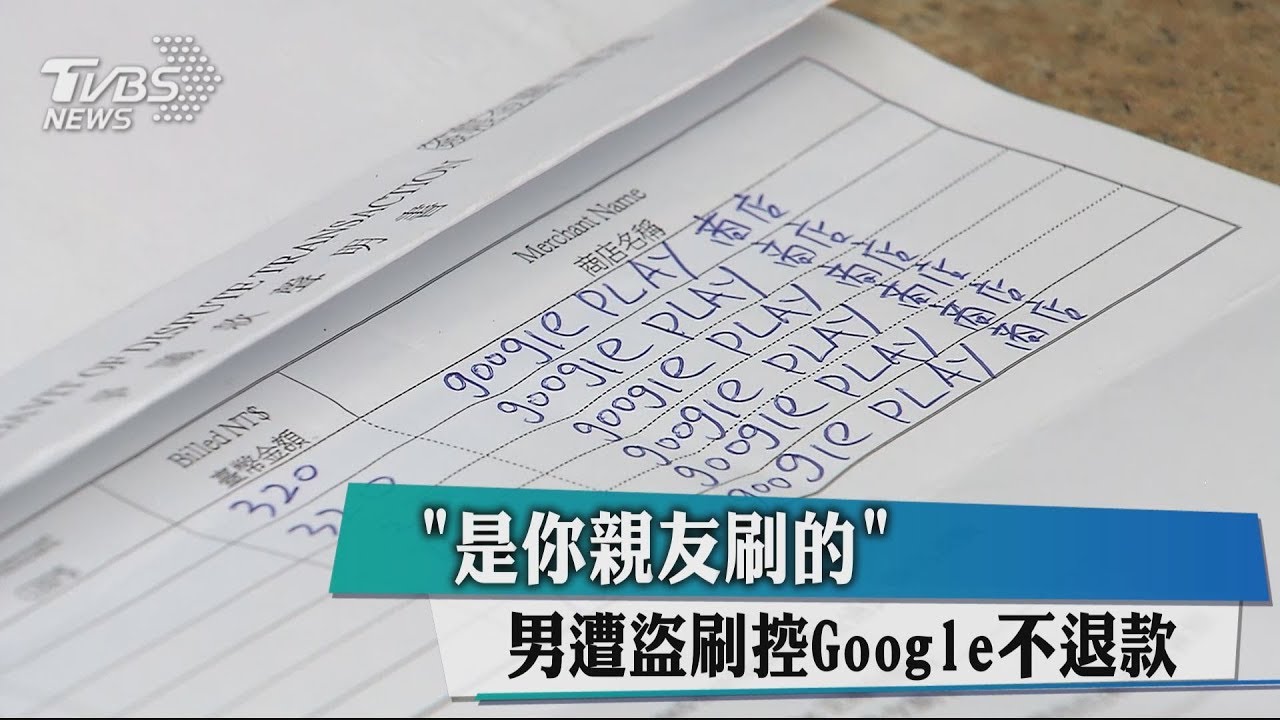 TVBS
NEWS
OF DISPUTE TRANSACTION
爭議款聲明書
Merchant Name
商店名稱
Billed NT$
臺幣金額
google PLAY 商店
320
google PLAY 商店
google PLAY 商店
google PLAY 商店
google PLAY 商店
google PLAY 商店
"是你親友刷的"
男遭盜刷控Google不退款